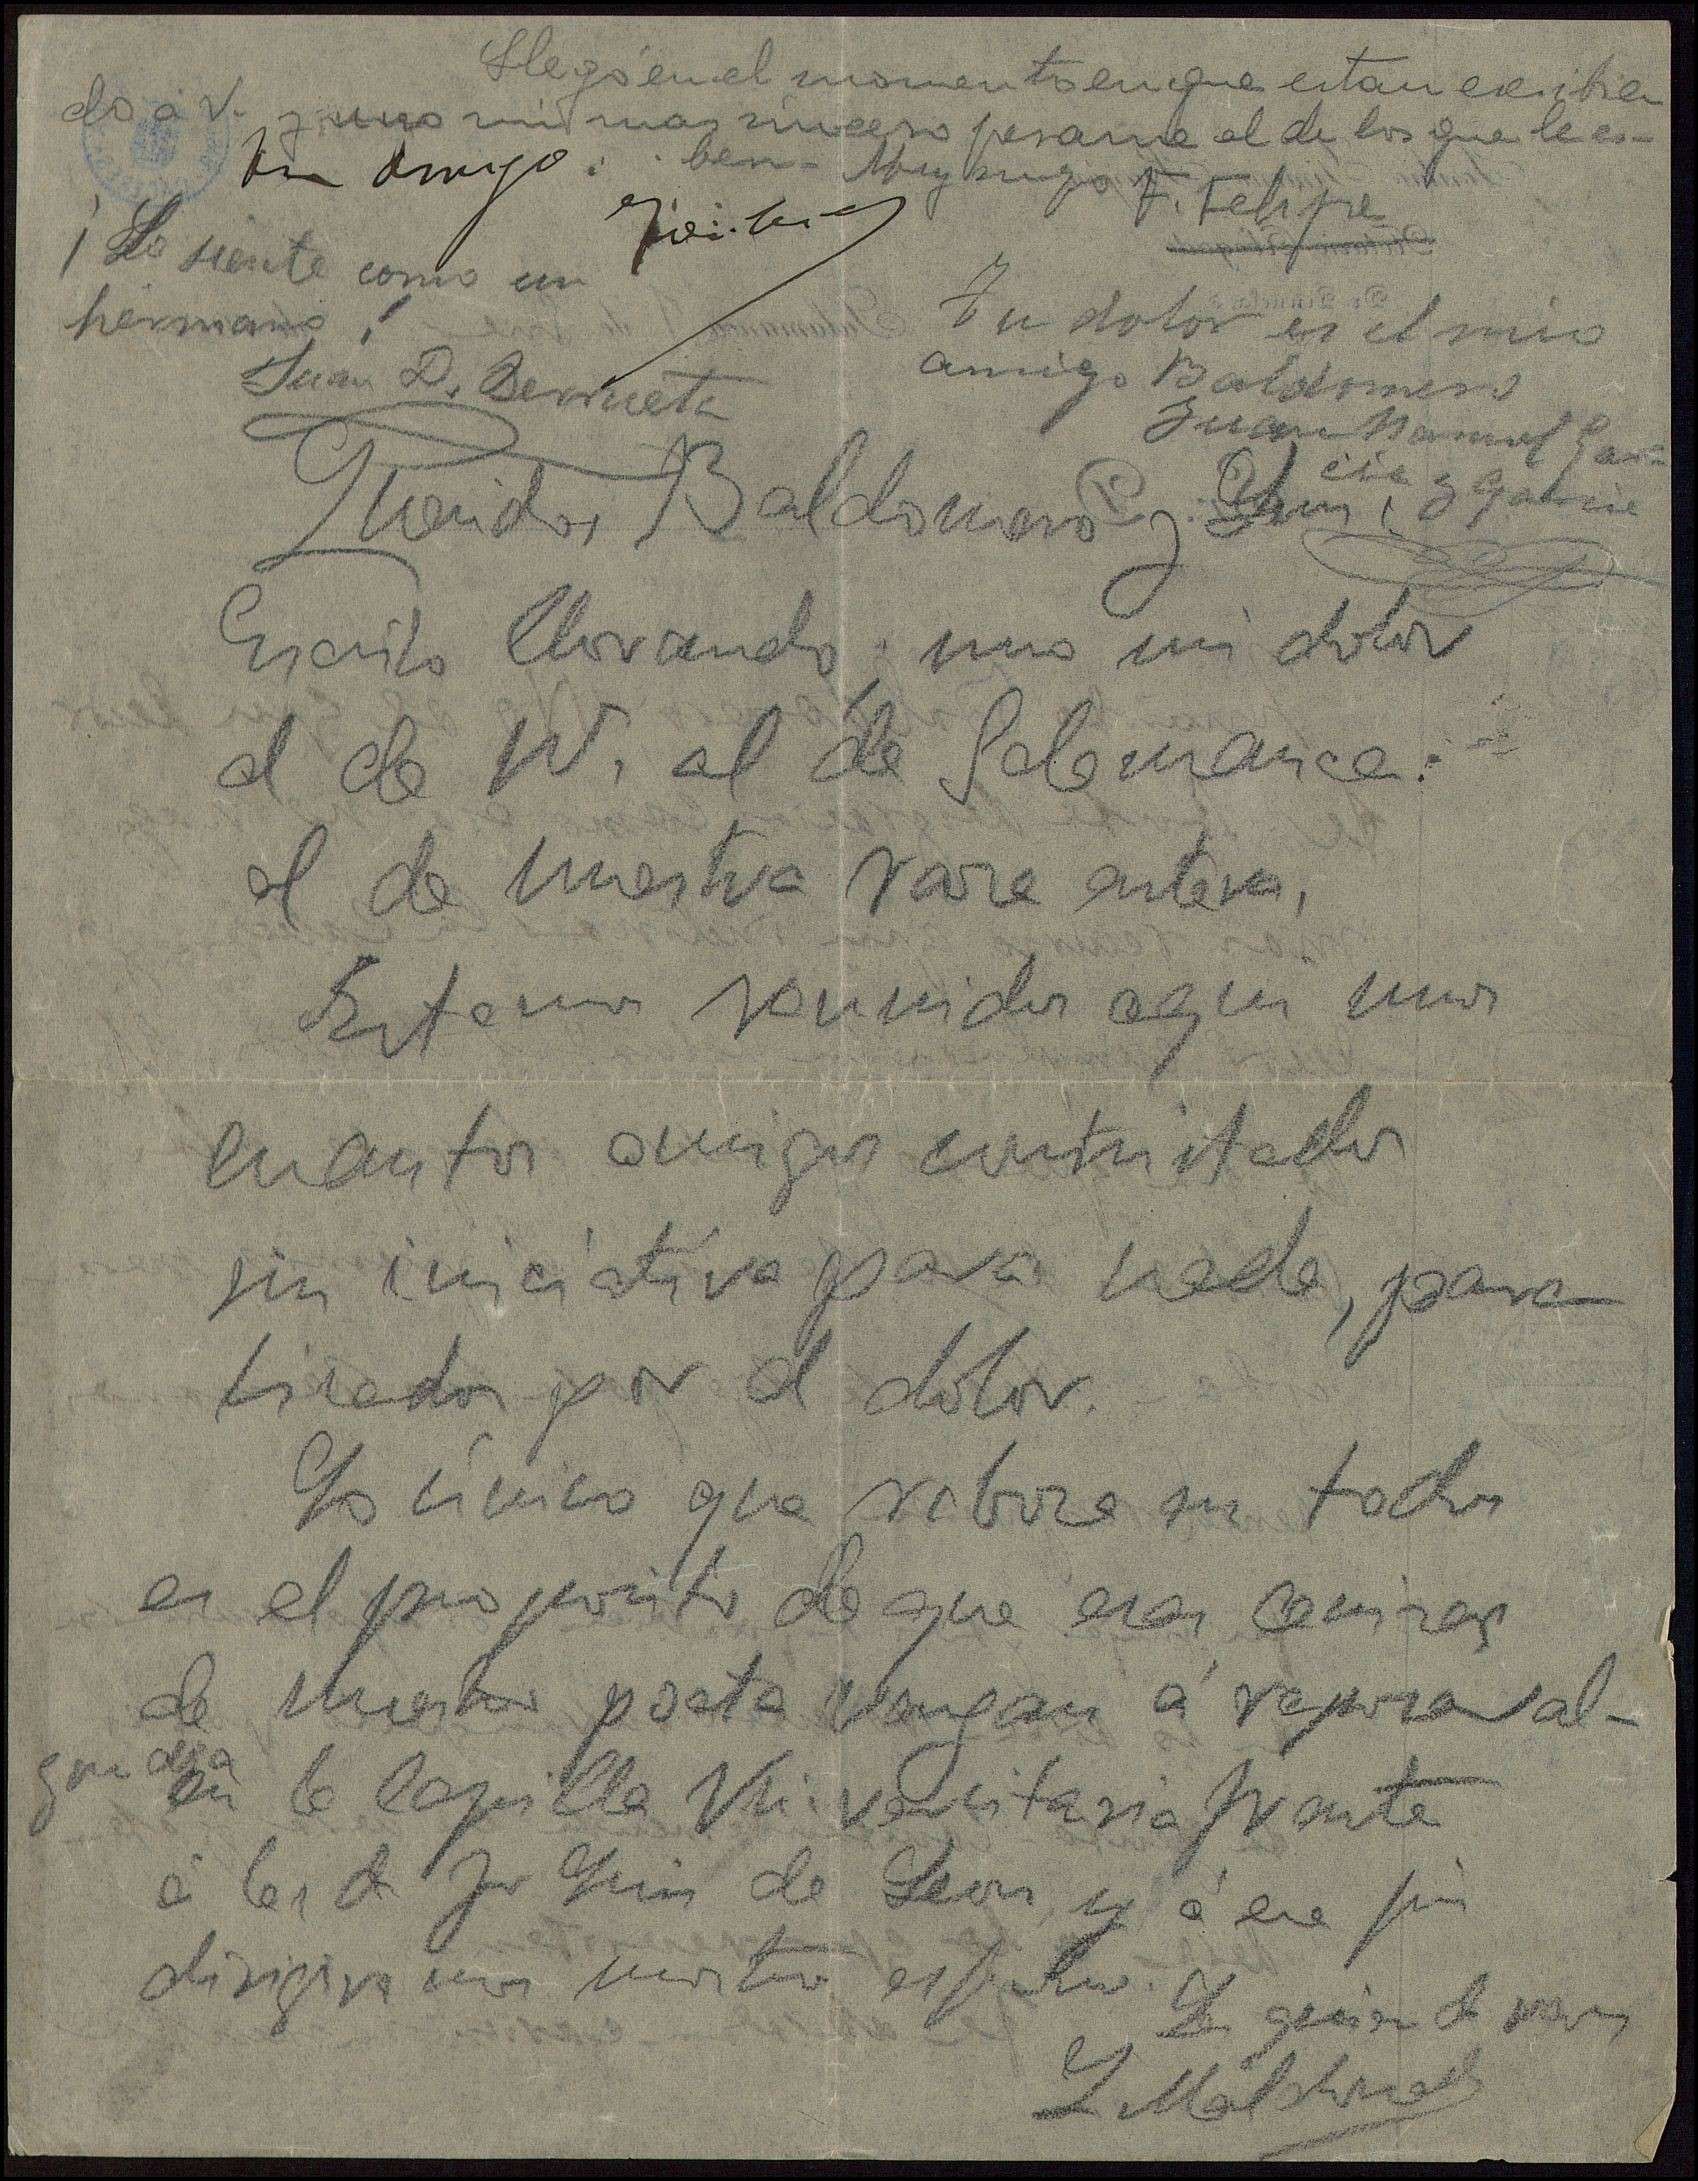 Llego en el momento en que estan escribien
do a V. y uno mi mas sincero pesame al de los que le es-
ben - Muy suyo F. Felipe
Un amigo:
¡Lo siente como un
hermano!
Juan D. Berrueta
Tu dolor es el mio
amigo Baldomero
Juan Manuel Gar-
cia y Garcia
Queridos Baldomero y Luis:
Escribo llorando; uno mi dolor
al de W. al de Salamanca:
al de nuestra raza entera,
Estamos reunidos aqui unos
cuantos amigos contristados
sin iniciativa para nada, para
lizados por el dolor.
Lo único que rebosa en todos
es el proposito de que esas cenizas
de nuestro poeta vengan á reposar al-
gun dia
en la Capilla Universitaria frente
á las de Fr Luis de Leon y á ese fin
dirigiremos nuestro esfuerzo.
Les quiere de veras
L Maldonado